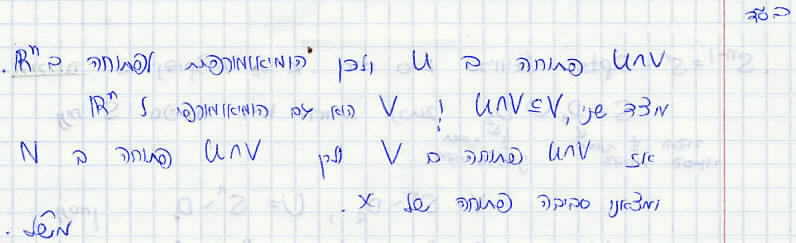 בס"ד
U∩V פתוחה ב U ולכן הומיאומורפית לפתוחה ב ℝⁿ.
מצד שני, U∩V⊆V ו V הוא גם הומיאומורפי ל ℝⁿ
אז U∩V פתוחה ב V ולכן U∩V פתוחה ב N
ומצאנו סביבה פתוחה של x.
משל.